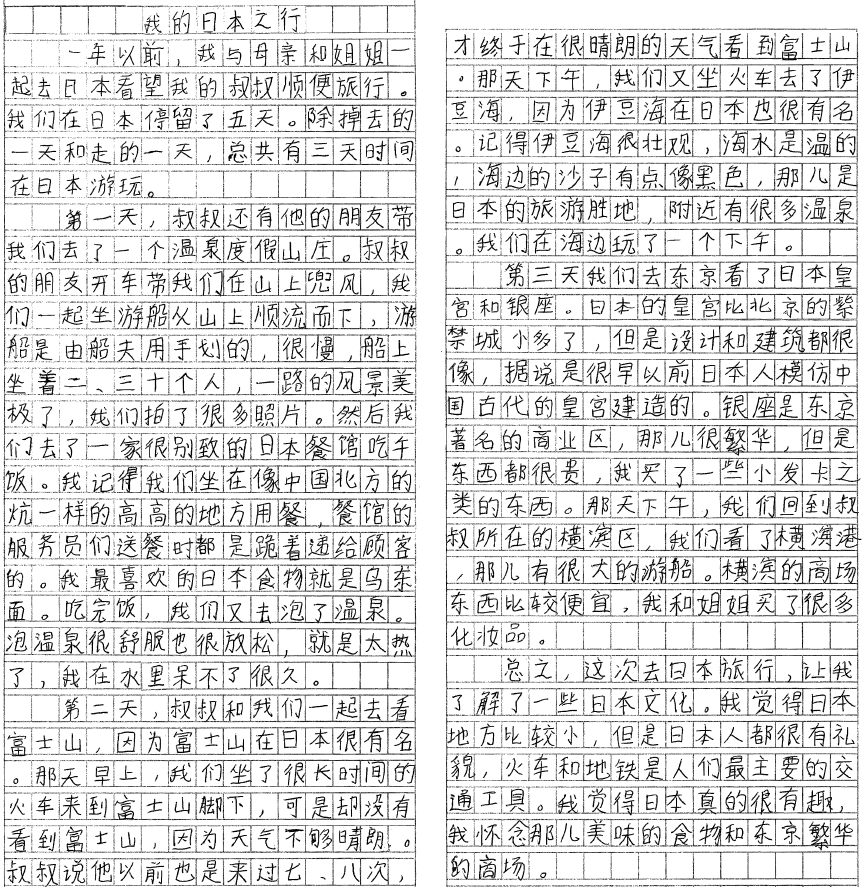 我的日本之行
一年以前，我与母亲和姐姐一
起去日本看望我的叔叔顺便旅行。
我们在日本停留了五天。除掉去的
一天和走的一天，总共有三天时间
在日本游玩。
第一天，叔叔还有他的朋友带
我们去了一个温泉度假山庄。叔叔
的朋友开车带我们在山上兜风，我
们一起坐游船从山上顺流而下，游
船是由船夫用手划的，很慢，船上
坐着二、三十个人，一路的风景美
极了，我们拍了很多照片。然后我
们去了一家很别致的日本餐馆吃午
饭。我记得我们坐在像中国北方的
炕一样的高高的地方用餐，餐馆的
服务员们送餐时都是跪着递给顾客
的。我最喜欢的日本食物就是乌东
面。吃完饭，我们又去泡了温泉。
泡温泉很舒服也很放松，就是太热
了，我在水里呆不了很久。
第二天，叔叔和我们一起去看
富士山，因为富士山在日本很有名
。那天早上，我们坐了很长时间的
火车来到富士山脚下，可是却没有
看到富士山，因为天气不够晴朗。
叔叔说他以前也是来过七、八次，
才终于在很晴朗的天气看到富士山
。那天下午，我们又坐火车去了伊
豆海，因为伊豆海在日本也很有名
。记得伊豆海很壮观，海水是温的
，海边的沙子有点像黑色，那儿是
日本的旅游胜地，附近有很多温泉
。我们在海边玩了一个下午。
第三天我们去东京看了日本皇
宫和银座。日本的皇宫比北京的紫
禁城小多了，但是设计和建筑都很
像，据说是很早以前日本人模仿中
国古代的皇宫建造的。银座是东京
著名的商业区，那儿很繁华，但是
东西都很贵，我买了一些小发卡之
类的东西。那天下午，我们回到叔
叔所在的横滨区，我们看了横滨港
，那儿有很大的游船。横滨的商场
东西比较便宜，我和姐姐买了很多
化妆品。
总之，这次去日本旅行，让我
了解了一些日本文化。我觉得日本
地方比较小，但是日本人都很有礼
貌，火车和地铁是人们最主要的交
通工具。我觉得日本真的很有趣，
我怀念那儿美味的食物和东京繁华
的商场。